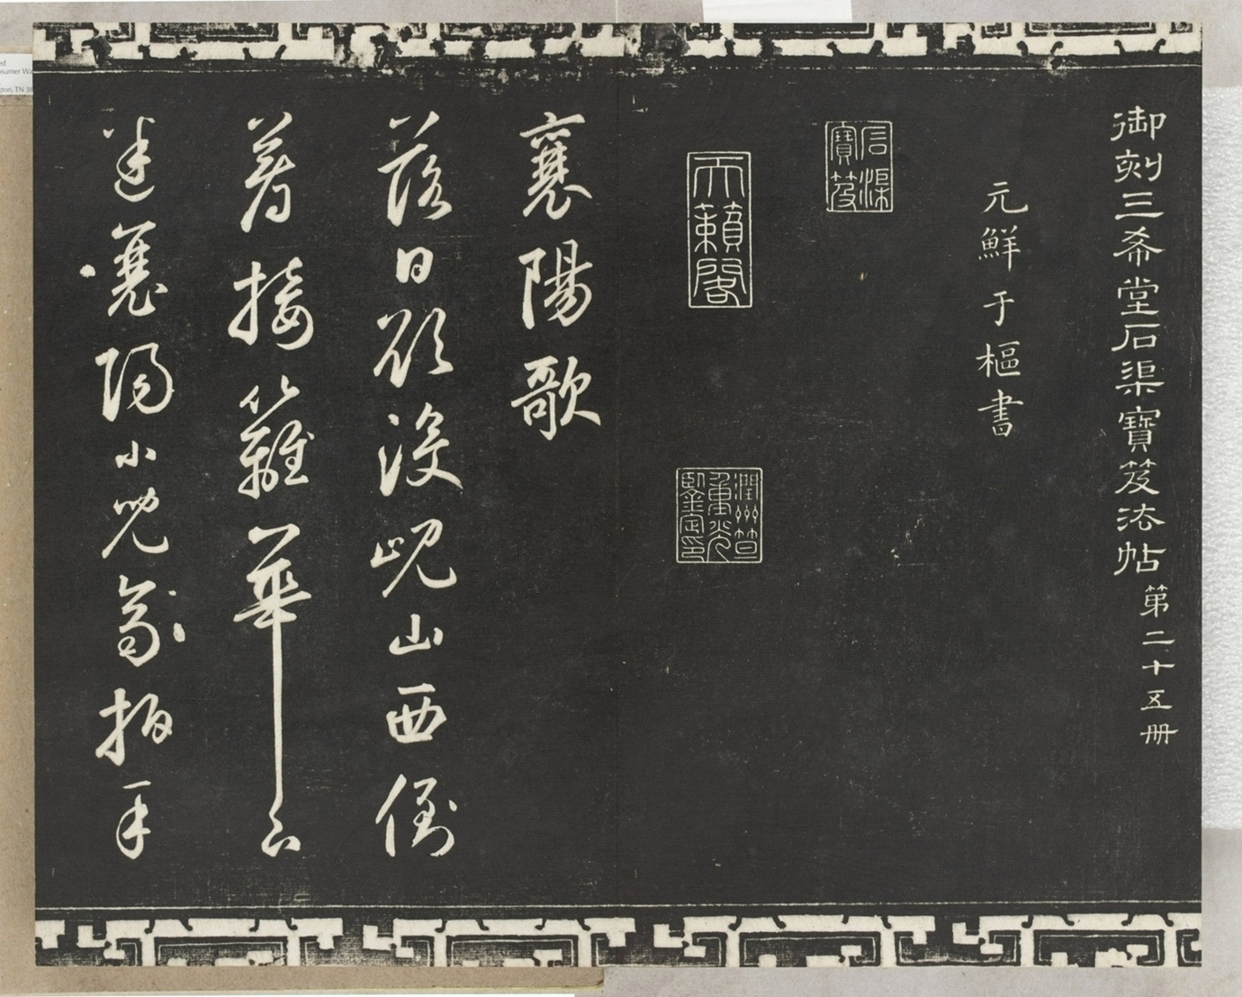 御刻三希堂石渠寶笈法帖第二十五冊
元鮮于樞書
石渠寶笈
天籟閣
襄陽歌
落日欲沒峴山西倒
著接籬華下
迷襄陽小兒齊拍手